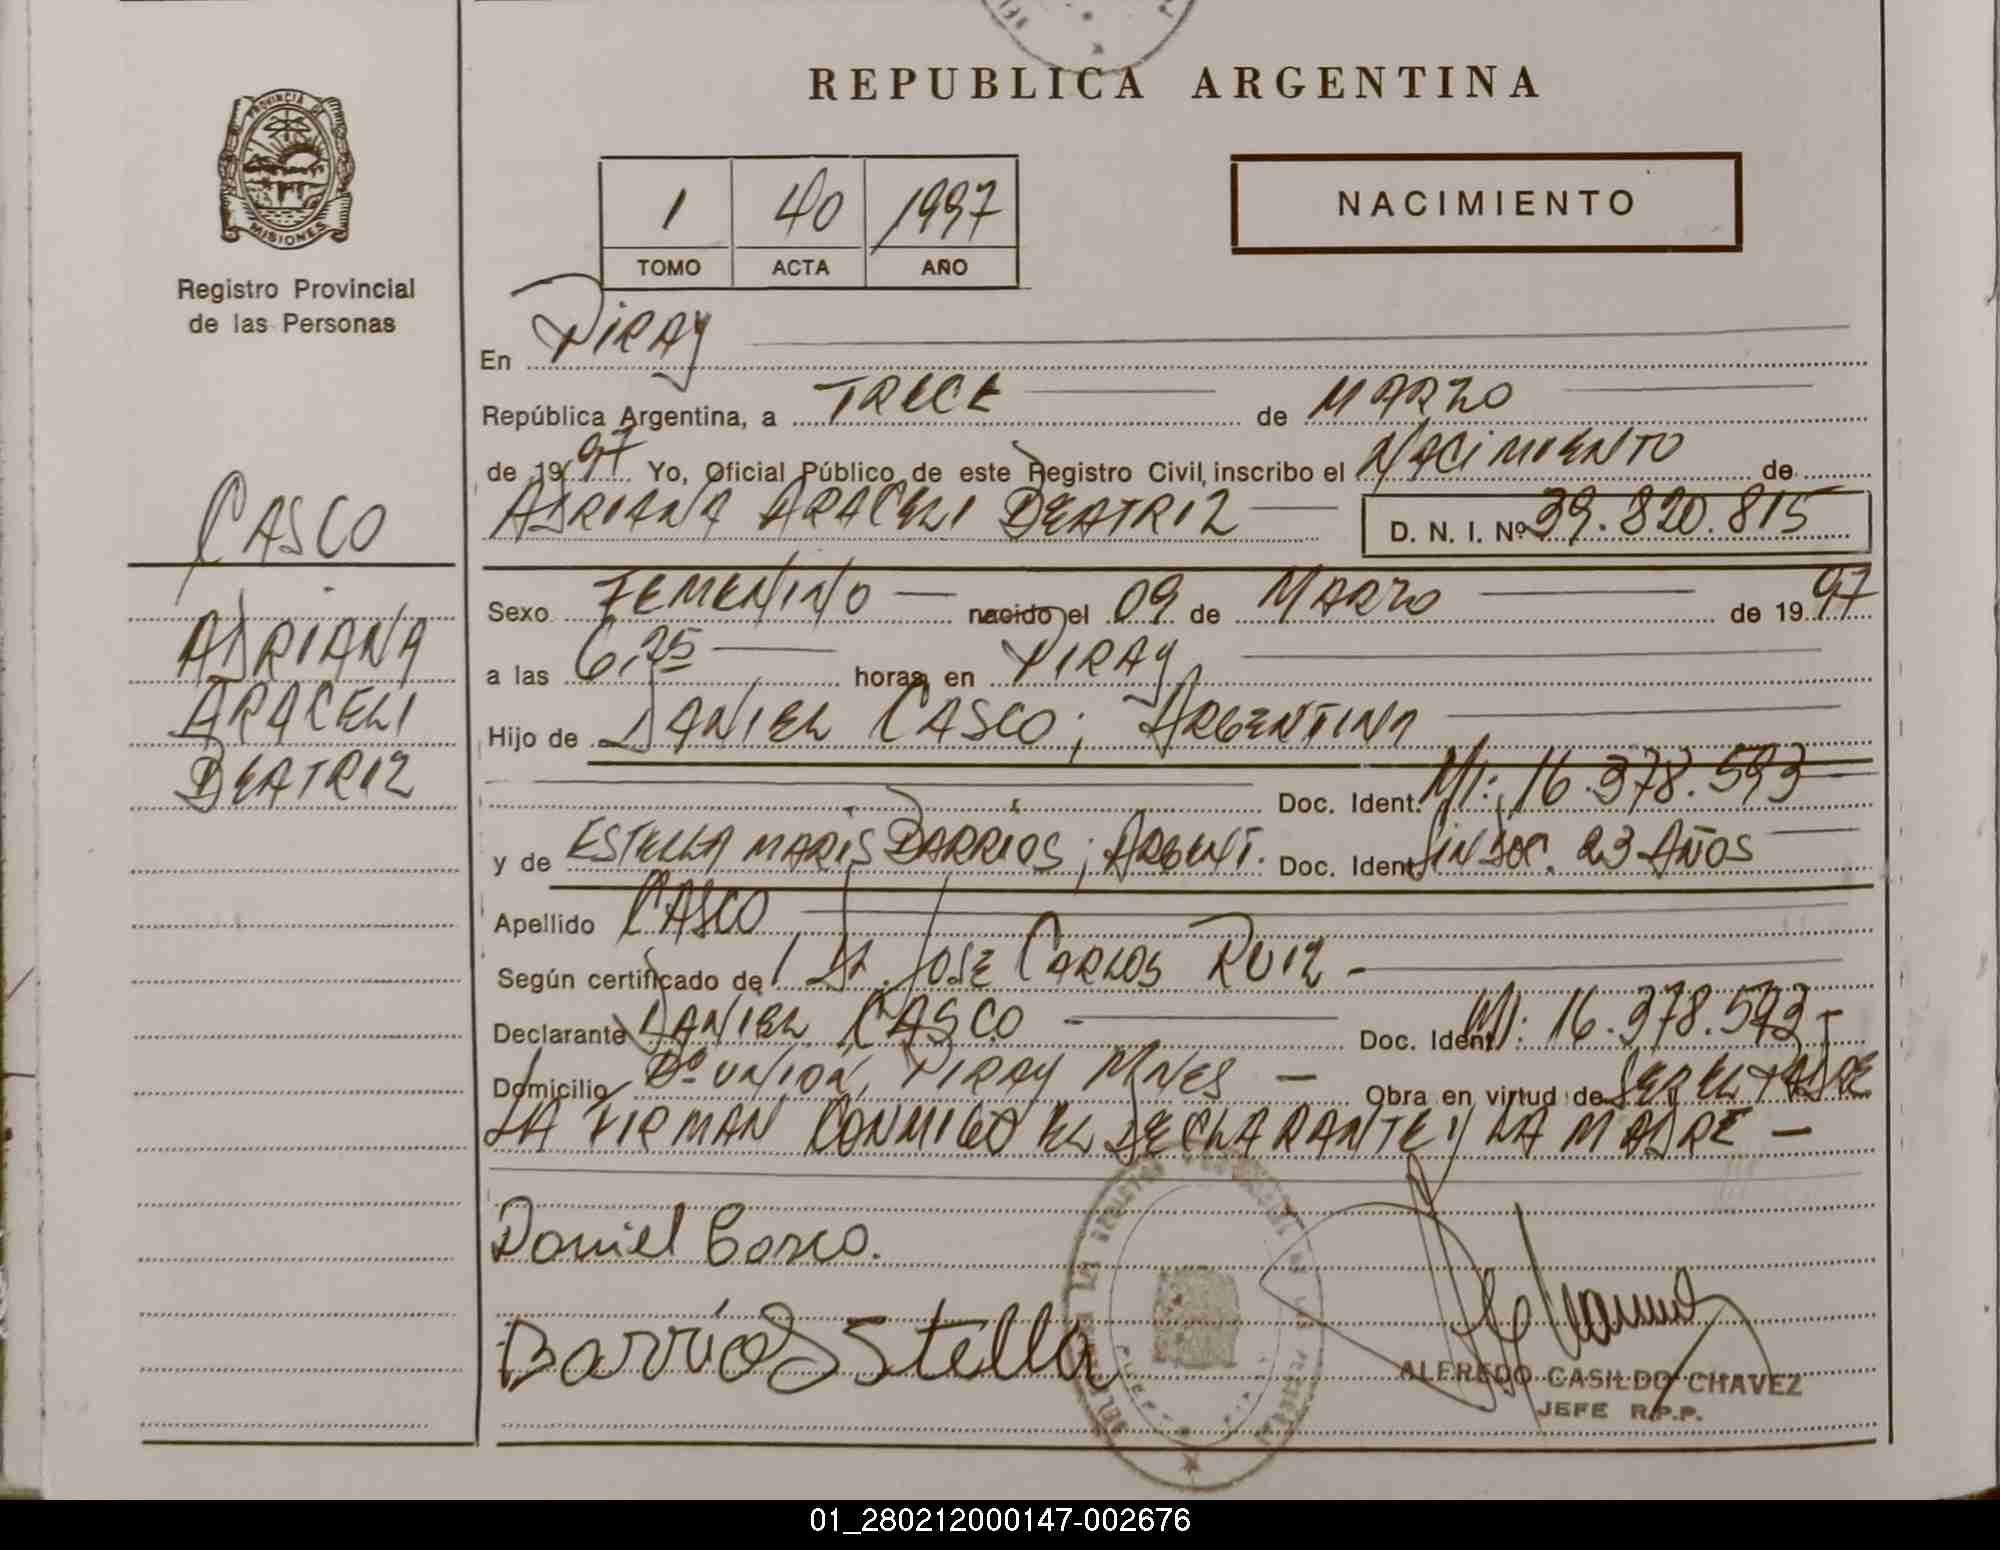 REPUBLICA ARGENTINA
PROVINCIA DE
MISIONES
Registro Provincial
de las Personas
1 40 1997
TOMO ACTA AÑO
NACIMIENTO
En PIRAY
República Argentina, a TRECE de MARZO
de 1997 Yo, Oficial Público de este Registro Civil, inscribo el NACIMIENTO de
ADRIANA ARACELI BEATRIZ D. N. I. Nº 39.820.815
CASCO
ADRIANA
ARACELI
BEATRIZ
Sexo FEMENINO nacido el 09 de MARZO de 1997
a las 6,25 horas en PIRAY
Hijo de DANIEL CASCO; ARGENTINA
Doc. Ident. MI: 16.378.593
y de ESTELLA MARIS BARRIOS; ARGENT. Doc. Ident. SIN DOC. 23 AÑOS
Apellido CASCO
Según certificado de DR. JOSE CARLOS RUIZ -
Declarante DANIEL CASCO - Doc. Ident. MI: 16.378.593 -
Domicilio Bº UNION, PIRAY MNES - Obra en virtud de SER EL PADRE
LA FIRMAN CONMIGO EL DECLARANTE Y LA MADRE -
Daniel Casco.
Barrios Stella
ALFREDO CASILDO CHAVEZ
JEFE R.P.P.
01_280212000147-002676